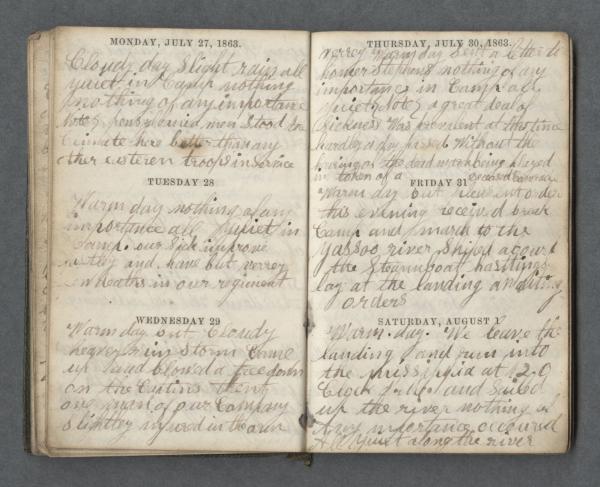 MONDAY, JULY 27, 1863.
Cloudy day slight rain all
quiet in Camp nothing
nothing of any importance
Note, pensylvanied men stood the
Climate here better than any
other esteren troops in service
TUESDAY 28
Warm day nothing of any
importance all quiet in
Camp. our sick improve
and have but verrey
in our regiment
WEDNESDAY 29
Warm day but Cloudy
hegvey rain Storm Came
up and blowed a tree down
on the Cutins tent
one man of our Company
Slightley injured in the arm
THURSDAY, JULY 30, 1863.
verrey Warm day Sent a letter to
homer Stephens nothing of any
importance in Camp all
quiet, Note, a great deal of
Sickness Was prevelent at this time
hardley a day passed Without the
of the dead march being played
in token of a deceased Comrade
FRIDAY 31
Warm day but plesent order
this evening received break
Camp and march to the
Yassoo river Shiped abourd
the Steamboat hasting
lay at the landing awaiting
orders
SATURDAY, AUGUST 1
Warm. day. We leave the
landing and run into
the missippia at 12. O
Clock and Sailed
up the river nothing of
Any importance occoured
All quiet along the river